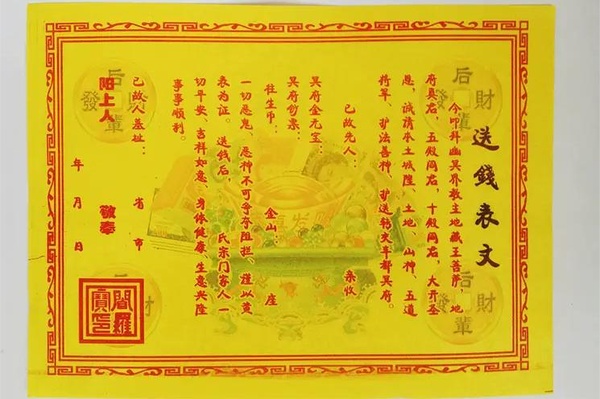 送錢表文
今叩拜幽冥界教主地藏王菩萨、地
府真君、五殿阎君、十殿阎君，大开圣
恩，诚清本土城隍、土地、山神、五道
将军、护法善神，护送转交丰都冥府。
已故先人：
亲收
冥府金元宝：
冥府钞票：
往生币：
金山：
座
一切恶鬼、恶神不可争夺阻拦，谨以黄
表为证。送钱后，
氏宗门家人一
切平安、吉祥如意、身体健康、生意兴隆
事事顺利。
已故人墓址：
省
市
陽上人
敬奉
年
月
日
閻羅寶印
后輩發財
后輩發財
后輩發財
后
財